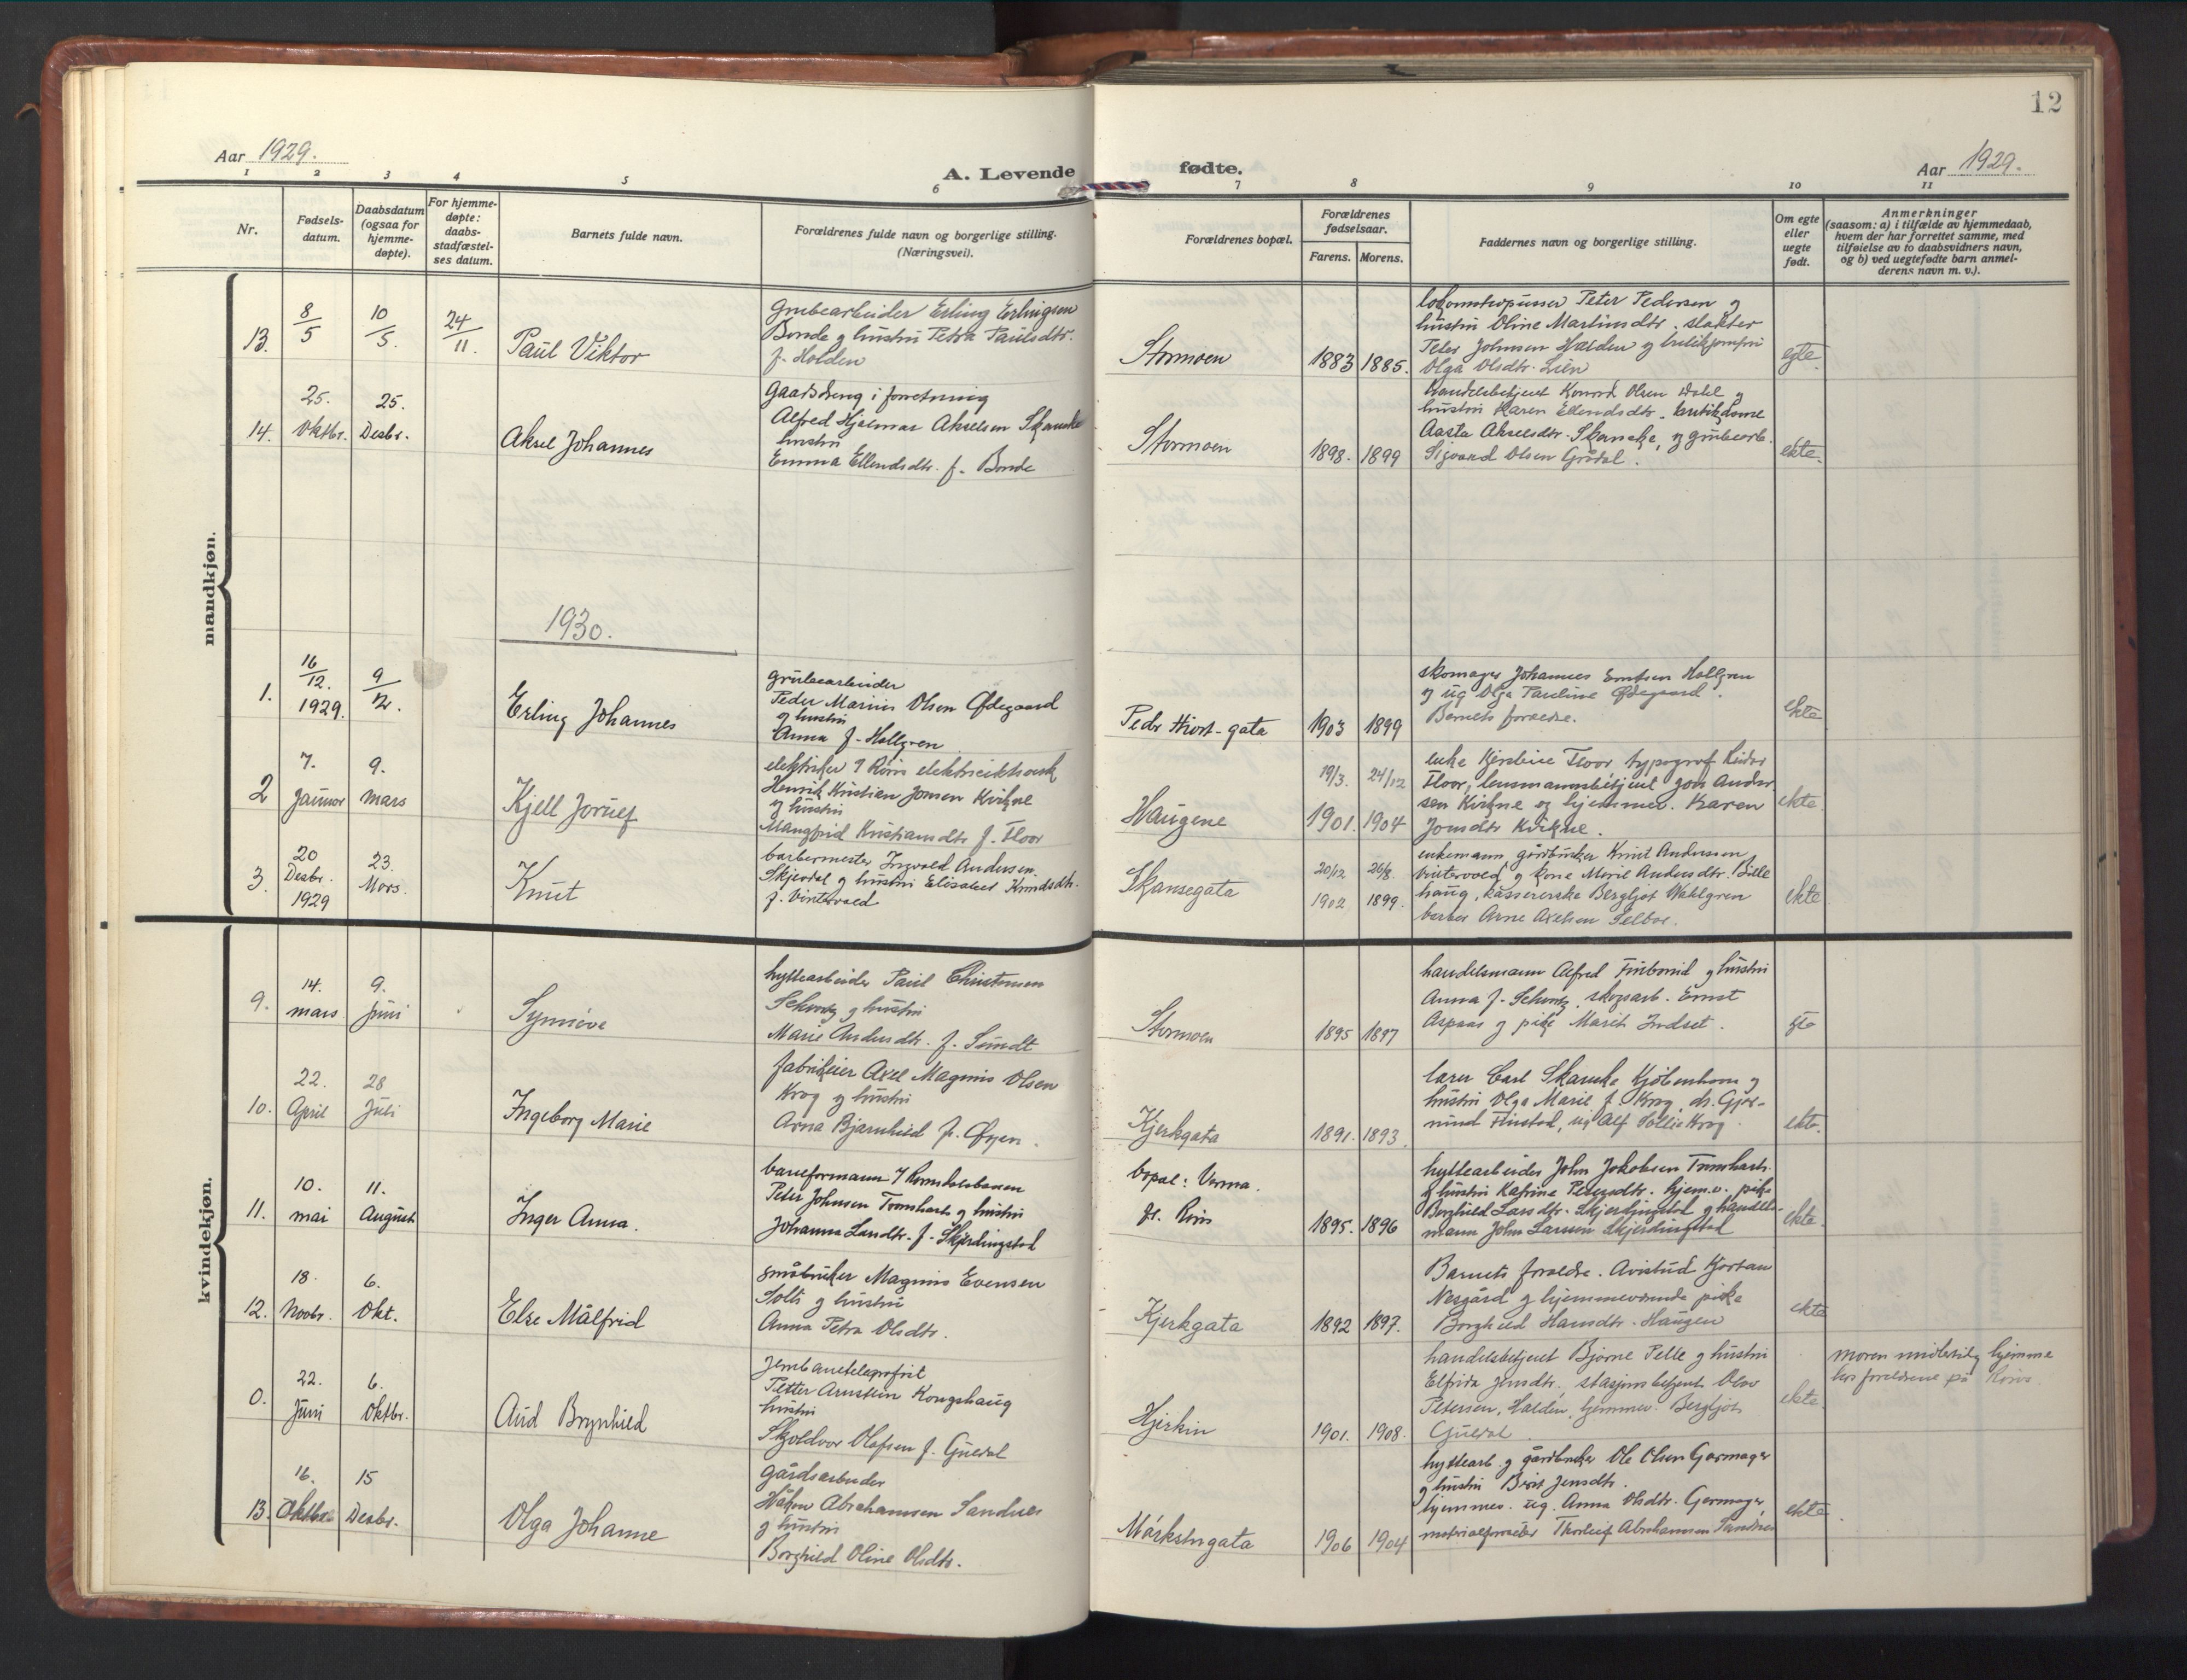 12
Aar 1929.
A. Levende fødte.
Aar 1929.
1 2 3 4 5 6 7 8 9 10 11
Nr.
Fødsels-
datum.
Daabsdatum
(ogsaa for
hjemme-
døpte).
For hjemme-
døpte:
daabs-
stadfæstel-
ses datum.
Barnets fulde navn.
Forældrenes fulde navn og borgerlige stilling.
(Næringsvei).
Forældrenes bopæl.
Forældrenes
fødselsaar.
Farens. Morens.
Faddernes navn og borgerlige stilling.
Om egte
eller
uegte
født.
Anmerkninger
(saasom: a) i tilfælde av hjemmedaab,
hvem der har forrettet samme, med
tilføielse av to daabsvidners navn,
og b) ved uegtefødte barn anmel-
derens navn m. v.).
mandkjøn.
13.
8/5
10/5.
24/11.
Paul Viktor
Grubearbeider Erling Erlingsen
Bonde og hustru Petra Paulsdtr.
f. Holden
Stormoen
1883 1885.
Peter Pedersen og
hustru Oline Martinsdtr. slakter
Peter Johnsen Halden og
Olga Olsdtr. Lien
egte
14.
25.
Oktbr.
25.
Desbr.
Aksel Johannes
Gaardsdreng i forretning
Alfred Hjalmar Akselsen Skancke
hustru
Emma Ellendsdtr. f. Bonde
Stormoen
1898. 1899
handelsbetjent Konrad Olsen Dahl og
hustru Karen Ellendsdtr. butikdame
Aasta Akselsdtr. Skancke, og grubearb.
Sigvard Olsen Grådal.
ekte.
1930.
1.
16/12.
1929.
9/2.
Erling Johannes
grubearbeider
Peder Marius Olsen Ødegaard
og hustru
Anna f. Hallgren
Peder Hiort-gata
1903 1899
skomager Johannes Hallgren
og ug Olga Pauline Ødegaard.
Barnets foreldre.
ekte
2
7.
Januar
9.
mars
Kjell Joruef
elektriker v/ Røros
Henrik Kristian Jonsen Kvikne
og hustru
Magnfrid Kristiansdtr f. Floor
Haugene
19/3. 24/12
1901. 1904
enke Floor, typograf
Floor, lensmannsbetjent Jon Ander
sen Kvikne og hjemmev. Karen
Jonsdtr Kvikne.
ekte
3.
20
Desbr.
1929
23.
Mars.
Knut
barbermester Ingvald Andersen
Skjerdal og hustru Elisabet Knudsdtr.
f. Vintervold
Skansegata
20/12 26/8.
1902 1899.
enkemann, gårdbruker Knut Andersen
Vintervold og kone Marie Andersdtr. Lille
haug, kassererske Bergljot Wahlgren
barber Arne Axelsen Selboe.
ekte
kvindekjøn.
9.
14.
mars
9.
Juni
Synnöve
hyttearbeider Paul Christensen
Schwitz og hustru
Marie Andersdtr. f. Sundt
Stormoen
1895 1897
handelsmann Alfred og hustru
Anna f. skogsarb. Ernst
Aspaas og pike Marit Indset.
10.
22.
April
28
Juli
Ingeborg Marie
fabrikeier Axel Magnus Olsen
Krog og hustru
Arna Bjarnhild f. Øyen.
Kjerkgata
1891. 1893.
lærer Carl Skancke Kjöbenhavn og
hustru Olga Marie f. Krog,
Finstad, ug Alf Krog.
ekte.
11.
10.
mai
11.
August
Inger Anna.
baneformann v/ Raumabanen
Peter Johnsen Tamshart og hustru
Johanna Larsdtr. f. Skjerdingstad
bopæl: Verma.
Røros
1895. 1896
hyttearbeider John Jakobsen
og hustru Katrine Petersdtr. hjem.v. pike
Borghild Larsdtr. Skjerdingstad og handels-
mann John Larsen Skjerdingstad
ekte
12.
18.
Novbr.
6.
Okt.
Else Målfrid
småbruker Magnus Evensen
Solli og hustru
Anna Petra Olsdtr.
Kjerkgata
1892 1897.
Barnets foreldre. Kjartan
Nesgård og hjemmeværende pike
Borghild Hansdtr. Haugen
ekte
0.
22.
Juni
6.
Oktbr.
Aud Brynhild
Jernbanetelegrafist
Petter Arnstein Kongshaug
hustru
Skjoldvor Olafsen f. Guldal
Hjerkin
1901. 1908.
handelsbetjent Bjarne Pelle og hustru
Elfrida Jensdtr. stasjonsbetjent Olav
Petersen, Halden, hjemmev. Bergljot
Guldal.
ekte
moren midlertidig hjemme
hos foreldrene på Röros
13.
16.
Oktbr.
15
Desbr.
Olga Johanne
Gårdsarbeider
Håkon Abrahamsen Sandnes
og hustru
Borghild Oline Olsdtr.
Mörkstugata
1906 1904
hyttearb. og gårdbruker Ole Olsen Garmager
og hustru Berit Jensdtr.
hjemmev. ug. Anna Olsdtr. Garmager,
materialforvalter Thorleif Abrahamsen Sandnes
ekte.